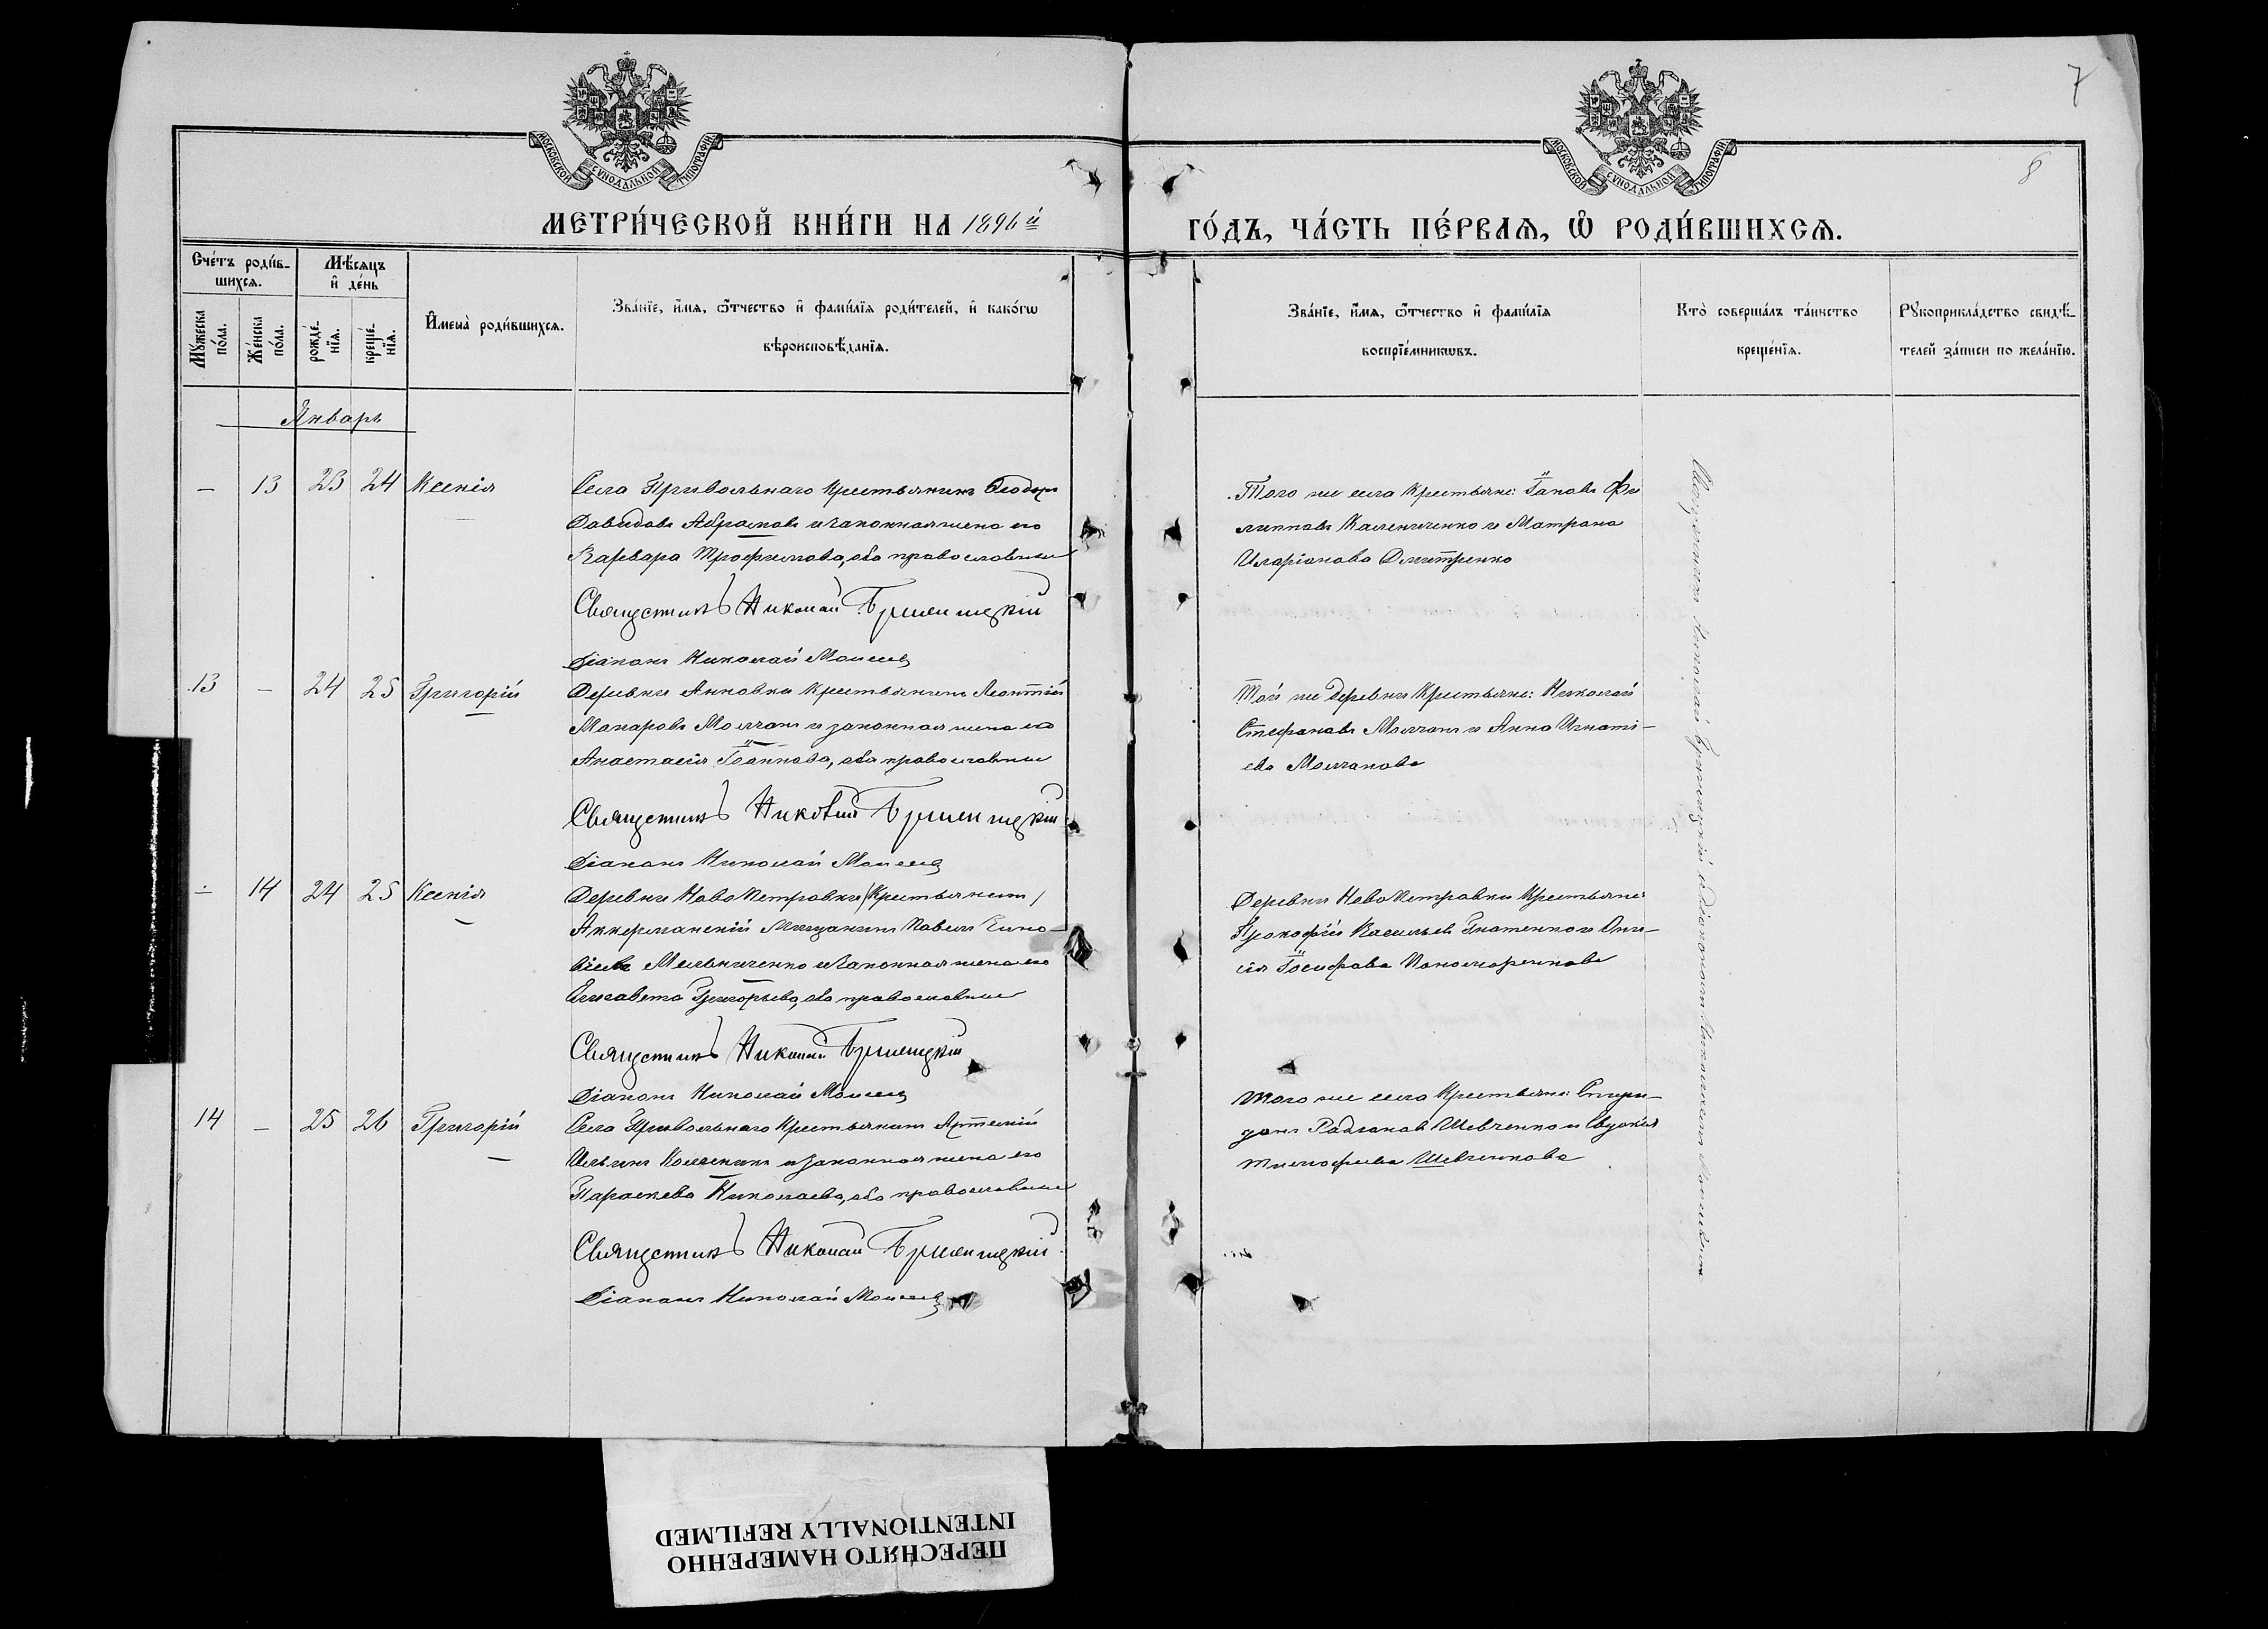 7
8
МОСКОВСКОЙ СУНОДАЛЬНОЙ ТИПОГРАФІИ
МОСКОВСКОЙ СУНОДАЛЬНОЙ ТИПОГРАФІИ
МЕТРИ́ЧЕСКОЙ КНИ́ГИ НА 1896й
ГО́ДЪ, ЧА́СТЬ ПЕ́РВАѦ, Ѡ҆ РОДИ́ВШИХСѦ.
Сче́тъ роди́в-
шихсѧ.
Мꙋ́жеска по́ла.
Же́нска по́ла.
Мѣ́сѧцъ
и҆ де́нь
рожде́-
нїѧ.
креще́-
нїѧ.
И҆мена̀ роди́вшихсѧ.
Зва́нїе, и҆́мѧ, ѻ҆́тчество и҆ фами́лїѧ роди́телей, и҆ како́гѡ
вѣроисповѣ́данїѧ.
Зва́нїе, и҆́мѧ, ѻ҆́тчество и҆ фами́лїѧ
воспрїе́мникѡвъ.
Кто̀ соверша́лъ та́инство
креще́нїѧ.
Рꙋкоприкла́дство свидѣ́-
телей за́писи по жела́нїю.
Январь
— 13 23 24 Ксенія
Села Привольнаго крестьянинъ Ѳеодоръ
Давидовъ Абрамовъ и законная жена его
Варвара Трофимова, оба православные
Священникъ Николай
Діаконъ Николай Моисеев
Того же села крестьяне: Іаковъ Фи
липповъ Калениченко и Матрона
Иларіонова Дмитренко
13 — 24 25 Григорій
Деревни Анновки крестьянинъ Леонтій
Макаровъ Молчанъ и законная жена его
Анастасія Іоаннова, оба православные
Священникъ Николай
Діаконъ Николай Моисеев
Той же деревни крестьяне: Николай
Стефановъ Молчанъ и Анна Игнаті-
ева Молчанова
— 14 24 25 Ксенія
Деревни НовоПетровки (крестьянинъ)
Аккерманскій мѣщанинъ Павелъ
Мельниченко и законная жена его
Елисавета Григорьева, оба православные
Священникъ Николай
Діаконъ Николай Моисеев
Деревни НовоПетровки крестьяне:
Прокофій Васильевъ Гнатенко и Они-
сія Іосифова Пономаренкова
14 — 25 26 Григорій
Села Привольнаго крестьянинъ Артемій
Ильинъ Колесникъ и законная жена его
Параскева Николаева, оба православные
Священникъ Николай
Діаконъ Николай Моисеев
Того же села крестьяне: Спири-
донъ Родіоновъ Шевченко и Евдокія
Тимофеева Шевченкова
Николай
ПЕРЕСНЯТО НАМЕРЕННО
INTENTIONALLY REFILMED